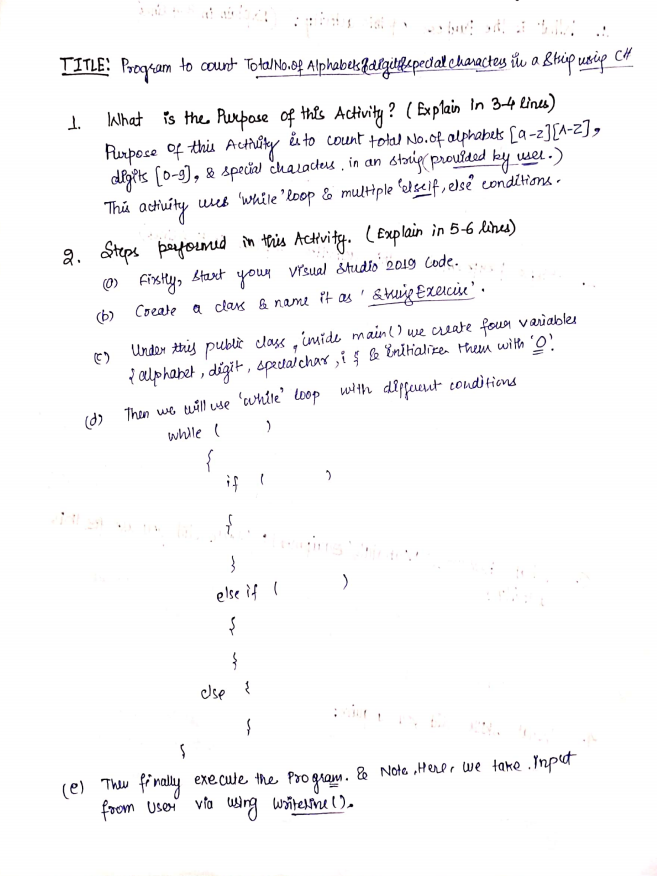 TITLE: Program to count Total No. of Alphabets & digit & special characters in a String using C#
1. What is the Purpose of this Activity? (Explain in 3-4 lines)
Purpose of this Activity is to count total No. of alphabets [a-z][A-Z],
digits [0-9], & special characters, in an string (provided by user.)
This activity uses 'while' loop & multiple 'elseif, else' conditions.
2. Steps performed in this Activity. (Explain in 5-6 lines)
(a) Firstly, start your Visual Studio 2019 Code.
(b) Create a class & name it as 'StringExercise'.
(c) Under this public class, inside main() we create four variables
{ alphabet, digit, specialchar, i } & initialize them with '0'.
(d) Then we will use 'while' loop with different conditions
while ( )
{
if ( )
{
}
else if ( )
{
}
else {
}
}
(e) Then finally execute the Program. & Note, Here, we take Input
from User via using Writeline().